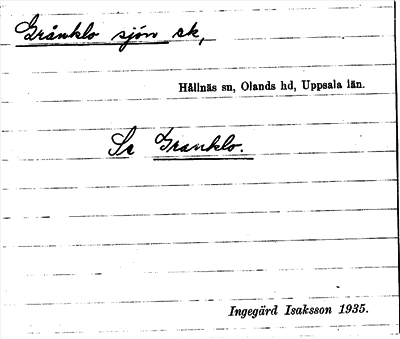 Gränklo sjön sk,
Hållnäs sn, Olands hd, Uppsala län.
Se Granklo.
Ingegärd Isaksson 1935.